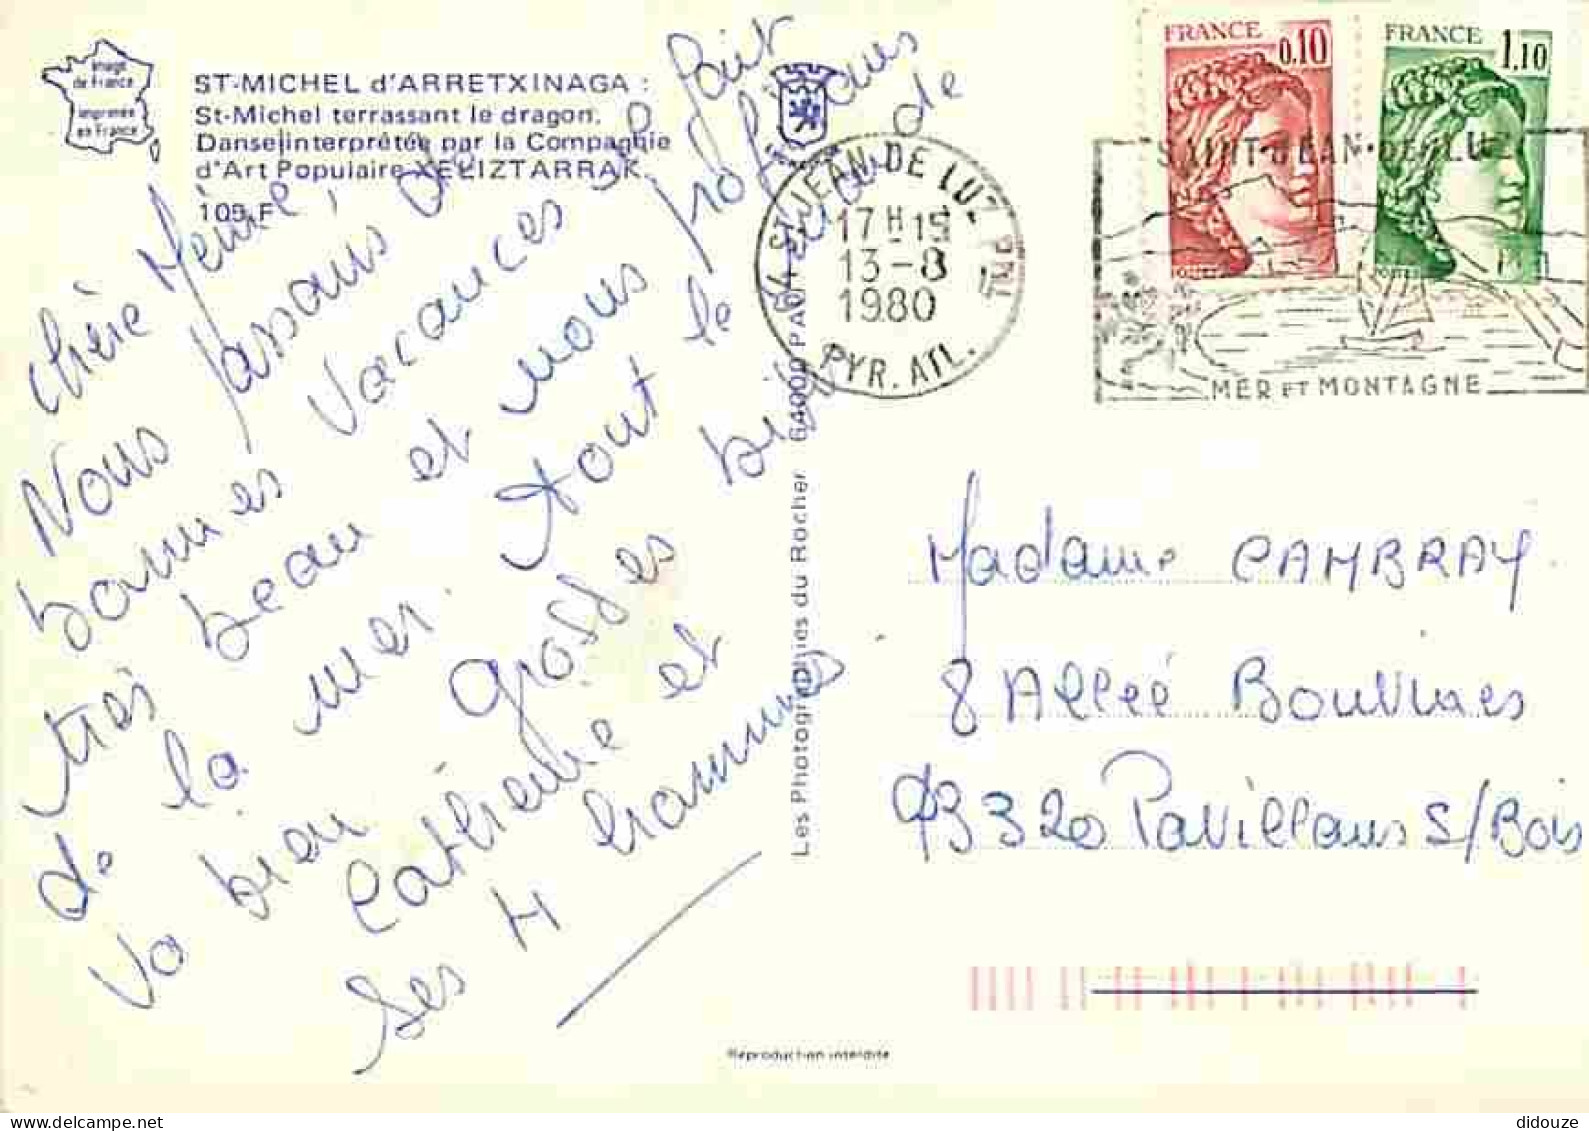 Image
de France
imprimée
en France
ST-MICHEL d'ARRETXINAGA :
St-Michel terrassant le dragon.
Danse interprétée par la Compagnie
d'Art Populaire XELIZTARRAK.
105 F
Chère Mémé,
Nous passons de
bonnes vacances il fait
très beau et nous profitons
de la mer. Tout le monde
va bien grosses bises de
Catherine et
ses 4 hommes
FRANCE
0,10
FRANCE
1,10
64 ST-JEAN DE LUZ PPAL
17 H 15
13-8
1980
PYR. ATL.
SAINT-JEAN-DE-LUZ
MER ET MONTAGNE
Les Photographies du Rocher 64000 PAU
Madame CAMBRAY
8 Allée Bouvines
93320 Pavillons S/Bois
Reproduction interdite
didouze